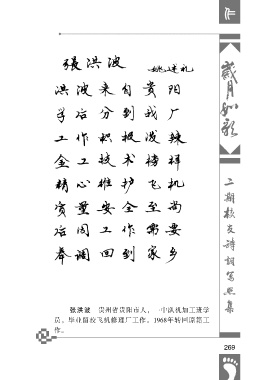 作
歲月如歌
二期校友诗词写照集
張洪波
姚述礼
洪波来自贵阳
学后分到我厂
工作积极泼辣
金工技术榜样
精心维护飞机
质量安全至尚
后因工作需要
奉调回到家乡
张洪波 贵州省贵阳市人，一中队机加工班学
员。毕业留校飞机修理厂工作。1968年转回原籍工
作。
269